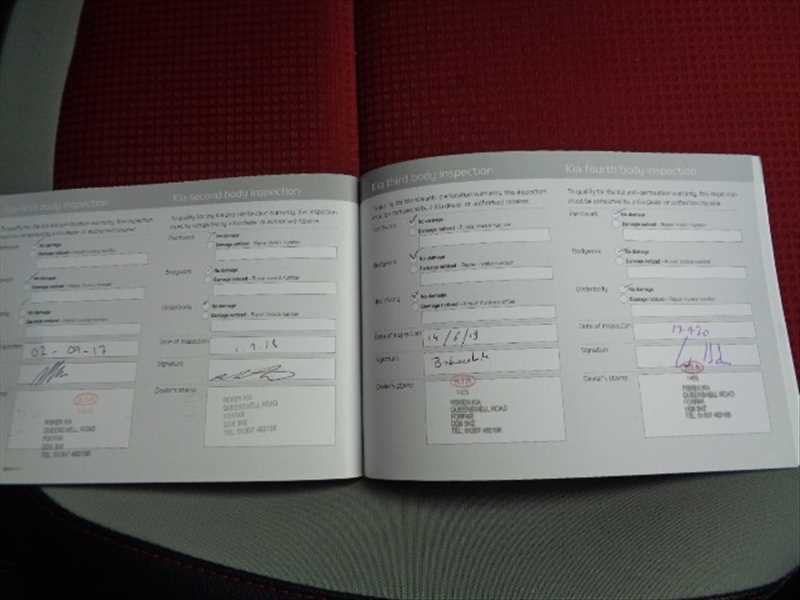 body inspection
No damage
Damage noticed - Repair invoice number
No damage
Damage noticed - Repair invoice number
No damage
Damage noticed - Repair invoice number
02-09-17
KIA
PERKEN KIA
QUEENSWELL ROAD
FORFAR
DD8 3HZ
Kia second body inspection
To qualify for the Kia anti-perforation warranty, this inspection
must be completed by a Kia dealer or authorised repairer.
Paintwork
No damage
Damage noticed - Repair invoice number
Bodywork
No damage
Damage noticed - Repair invoice number
Underbody
No damage
Damage noticed - Repair invoice number
Date of inspection
1.9.18
Signature
Dealer's stamp
QUEENSWELL ROAD
FORFAR
DD8 3HZ
Kia third body inspection
To qualify for the Kia anti-perforation warranty, this inspection
must be completed by a Kia dealer or authorised repairer.
Paintwork
No damage
Damage noticed - Repair invoice number
Bodywork
No damage
Damage noticed - Repair invoice number
Underbody
No damage
Damage noticed - Repair invoice number
Date of inspection
14/6/19
Signature
Dealer's stamp
KIA
QUEENSWELL ROAD
FORFAR
DD8 3HZ
Kia fourth body inspection
To qualify for the Kia anti-perforation warranty, this inspection
must be completed by a Kia dealer or authorised repairer.
Paintwork
No damage
Damage noticed - Repair invoice number
Bodywork
No damage
Damage noticed - Repair invoice number
Underbody
No damage
Damage noticed - Repair invoice number
Date of inspection
17.9.20
Signature
Dealer's stamp
KIA
QUEENSWELL ROAD
FORFAR
DD8 3HZ